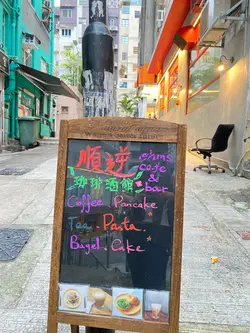 順逆 ohms
咖啡酒館 cafe
&
bar
Coffee Pancake
Tea . Pasta .
Bagel . Cake